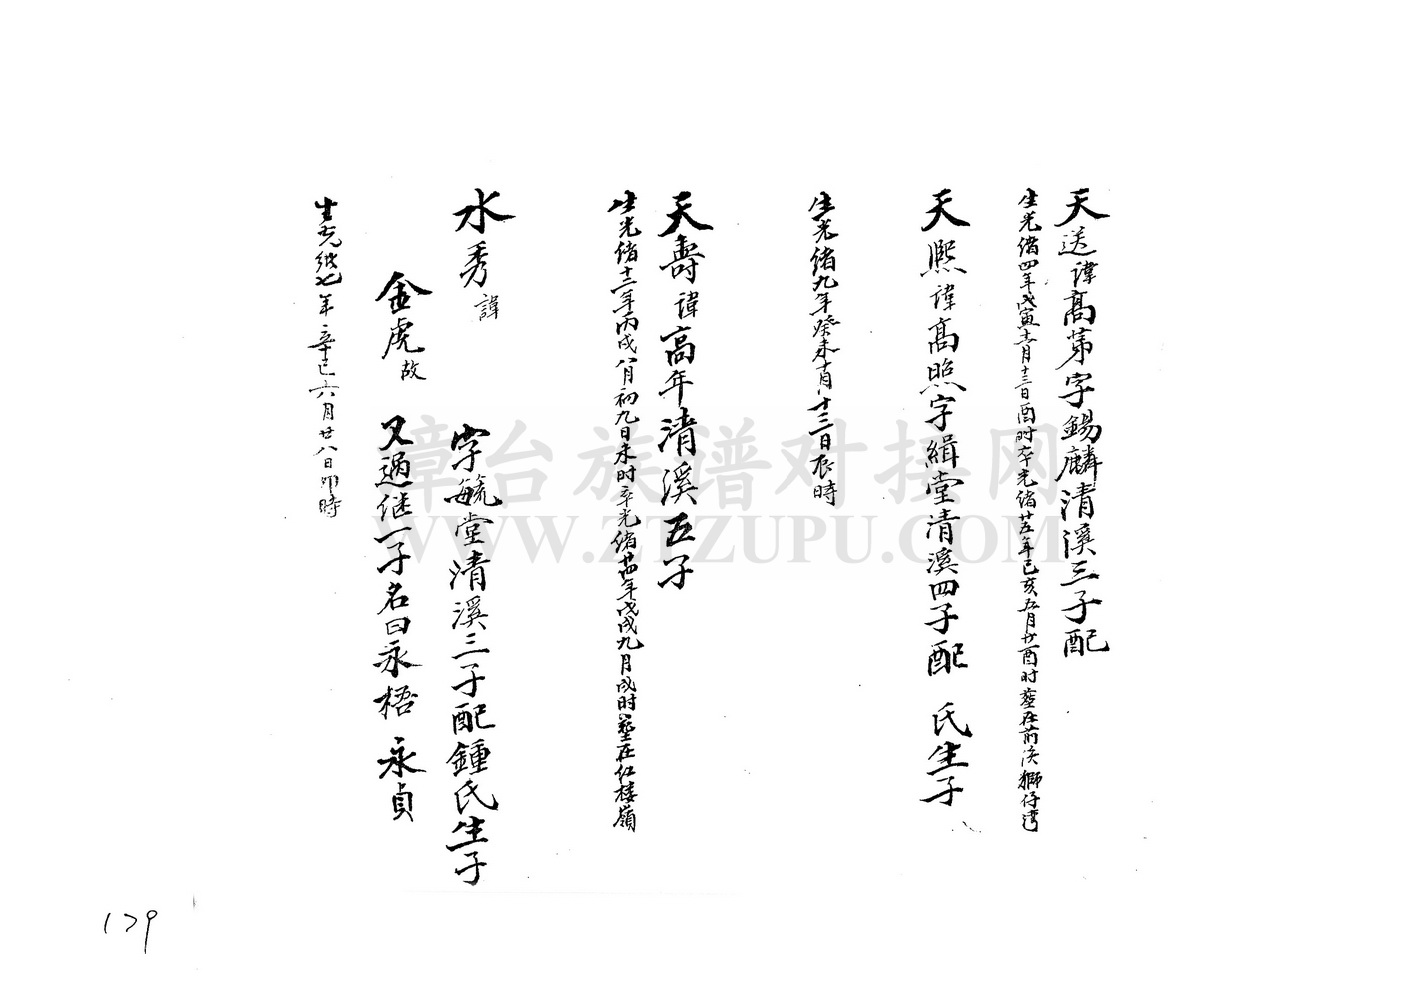 天送諱高第字錫麟清溪三子配
生光緒四年戊寅十二月十三日酉时卒光緒廿五年己亥五月廿酉时塟在前溪獅仔湾
天熈諱高照字緝堂清溪四子配 氏生子
生光緒九年癸未十月十三日辰時
天壽諱高年清溪五子
生光绪十二年丙戌八月初九日未时卒光绪廿四年戊戌九月戌时塟在红楼嶺
水秀諱 字毓堂清溪三子配鍾氏生子
金虎故 又過继一子名曰永梧 永貞
生光緒七年辛巳六月廿八日卯時
章台族谱对接网
WWW.ZTZUPU.COM
179